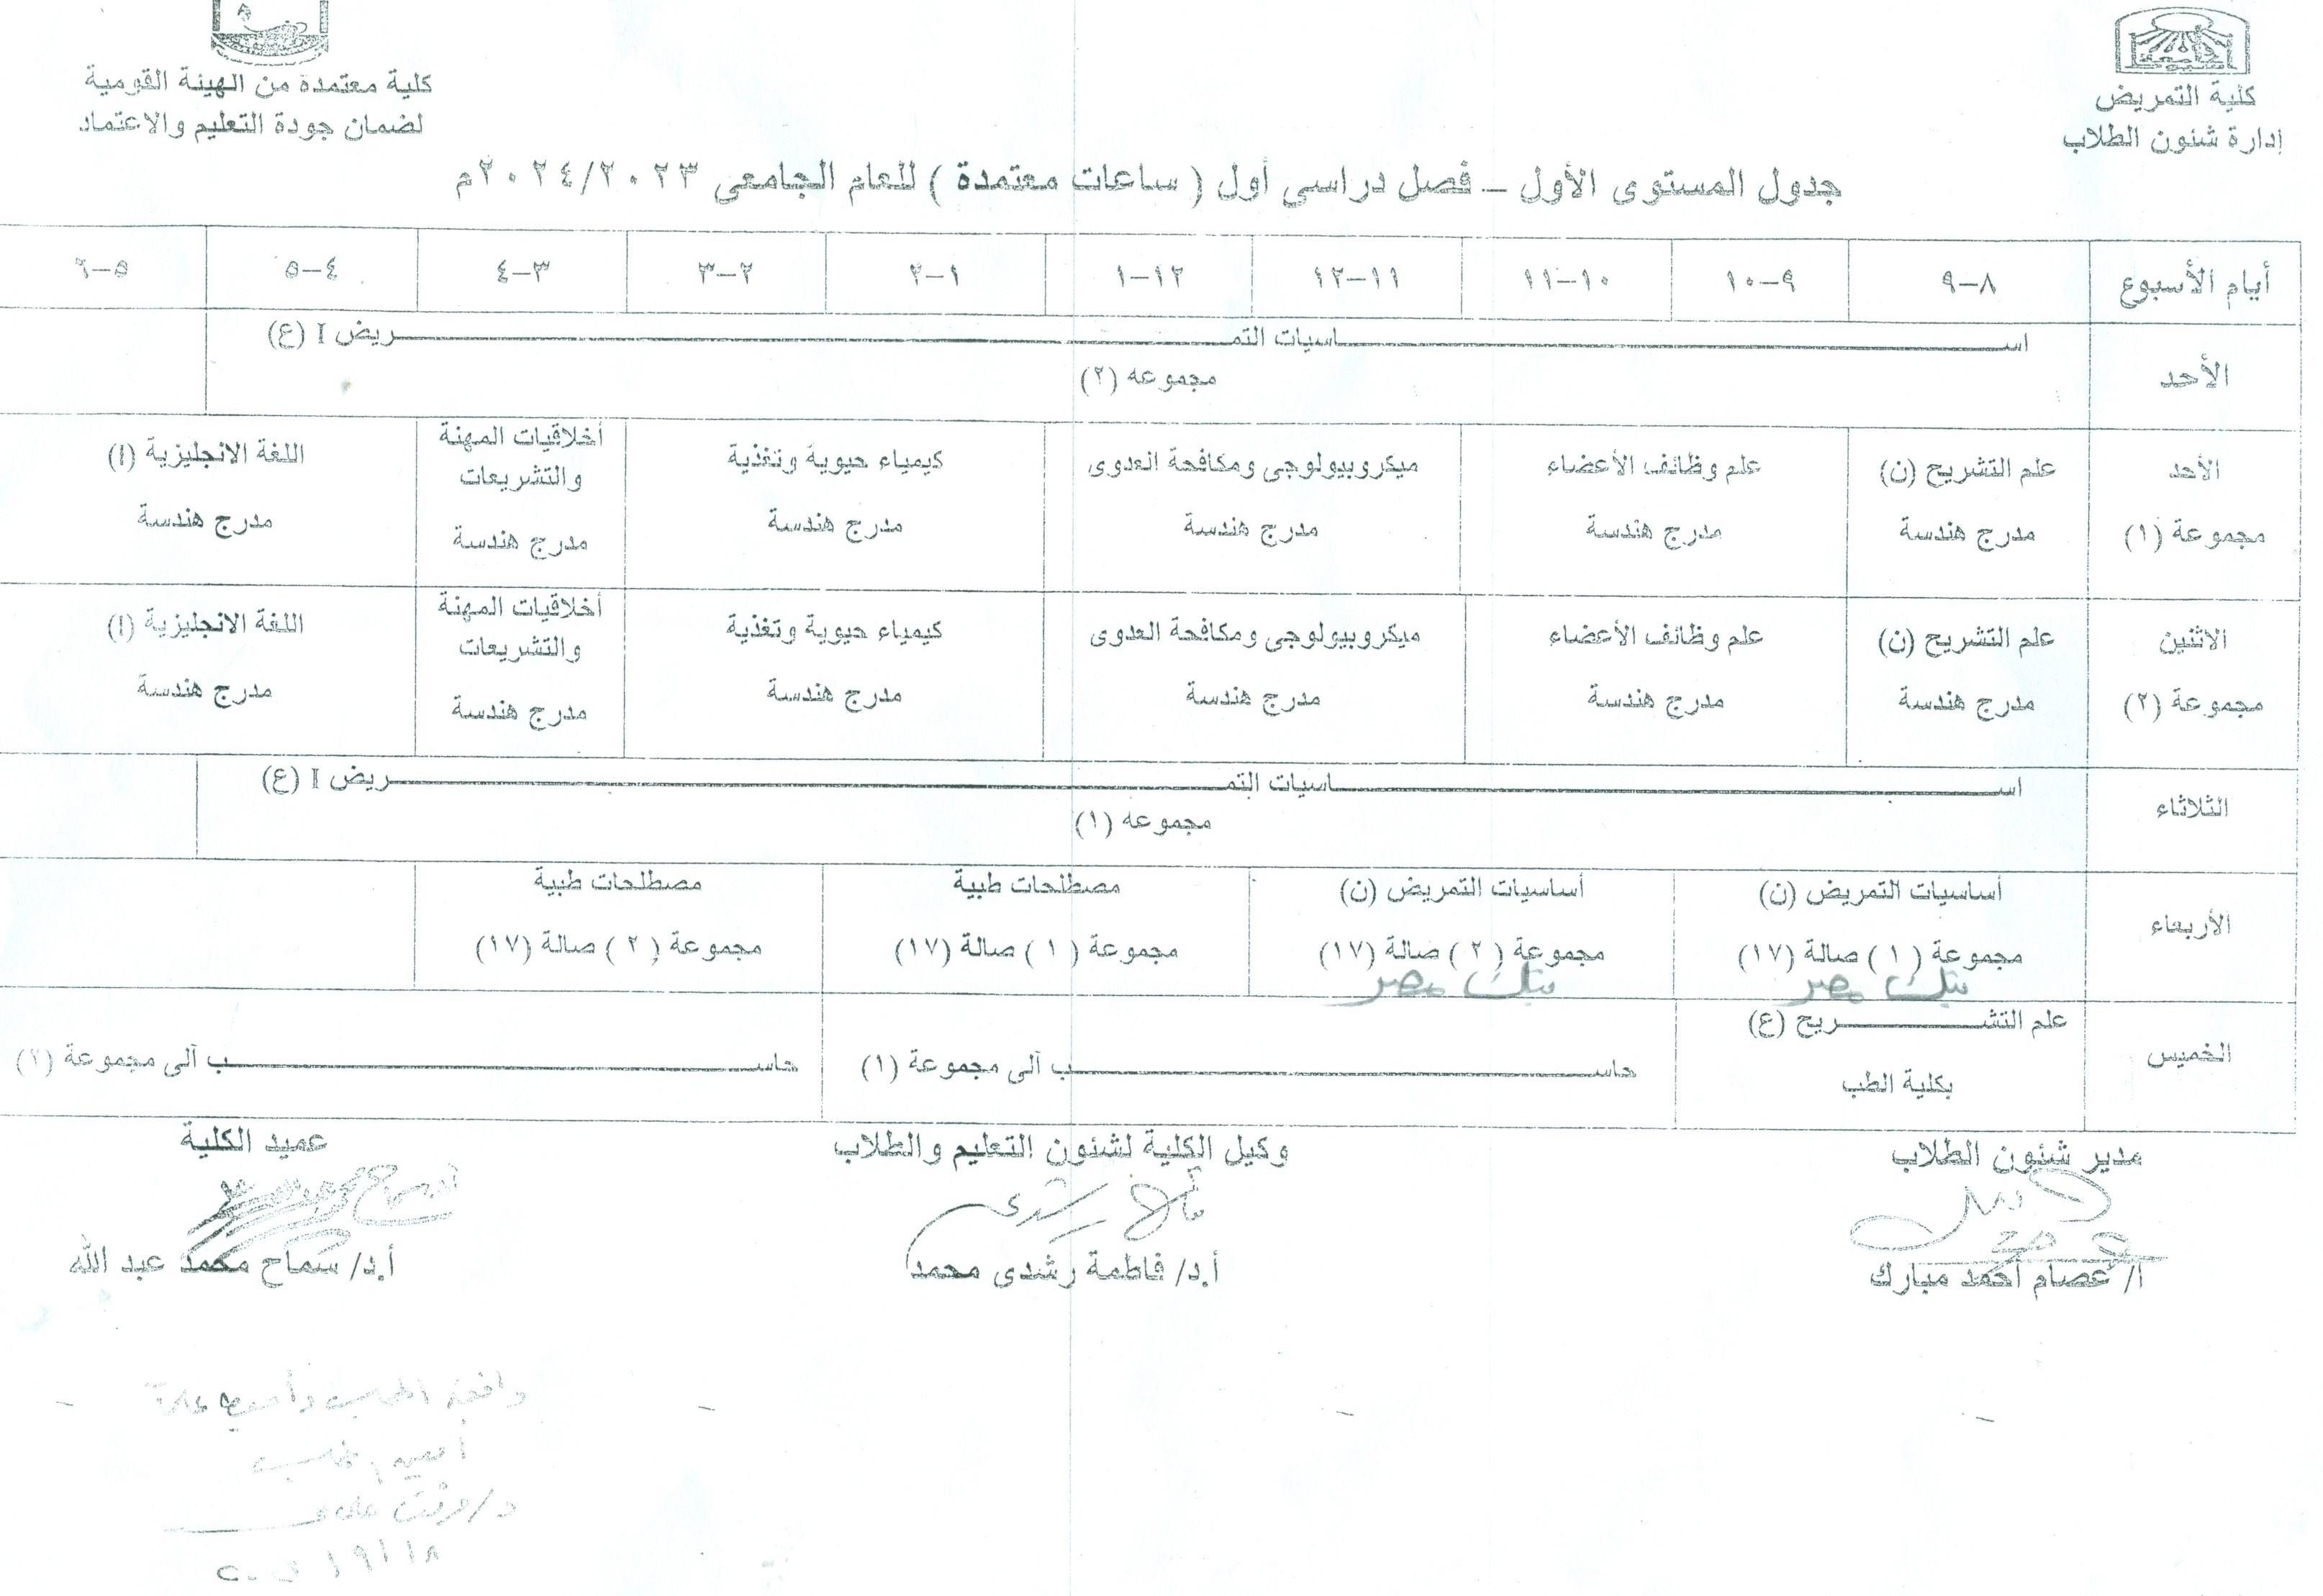 كلية التمريض
إدارة شئون الطلاب
كلية معتمدة من الهيئة القومية
لضمان جودة التعليم والاعتماد
جدول المستوى الأول – فصل دراسى أول ( ساعات معتمدة ) للعام الجامعى ٢٠٢٤/٢٠٢٣م
أيام الأسبوع ٨–٩ ٩–١٠ ١٠–١١ ١١–١٢ ١٢–١ ١–٢ ٢–٣ ٣–٤ ٤–٥ ٥–٦
الأحد
اســـاسيات التمـــريض I (ع)
مجموعه (٢)
الأحد
مجموعة (١)
علم التشريح (ن)
مدرج هندسة
علم وظائف الأعضاء
مدرج هندسة
ميكروبيولوجى ومكافحة العدوى
مدرج هندسة
كيمياء حيوية وتغذية
مدرج هندسة
أخلاقيات المهنة
والتشريعات
مدرج هندسة
اللغة الانجليزية (I)
مدرج هندسة
الاثنين
مجموعة (٢)
علم التشريح (ن)
مدرج هندسة
علم وظائف الأعضاء
مدرج هندسة
ميكروبيولوجى ومكافحة العدوى
مدرج هندسة
كيمياء حيوية وتغذية
مدرج هندسة
أخلاقيات المهنة
والتشريعات
مدرج هندسة
اللغة الانجليزية (I)
مدرج هندسة
الثلاثاء
اســـاسيات التمـــريض I (ع)
مجموعه (١)
الأربعاء
أساسيات التمريض (ن)
مجموعة ( ١ ) صالة (١٧)
بنك مصر
أساسيات التمريض (ن)
مجموعة ( ٢ ) صالة (١٧)
بنك مصر
مصطلحات طبية
مجموعة ( ١ ) صالة (١٧)
مصطلحات طبية
مجموعة ( ٢ ) صالة (١٧)
الخميس
علم التشـــريح (ع)
بكلية الطب
حاســـب آلى مجموعة (١)
حاســـب آلى مجموعة (٢)
مدير شئون الطلاب
أ/ عصام أحمد مبارك
وكيل الكلية لشئون التعليم والطلاب
أ.د/ فاطمة رشدى محمد
عميد الكلية
أ.د/ سماح محمد عبد الله